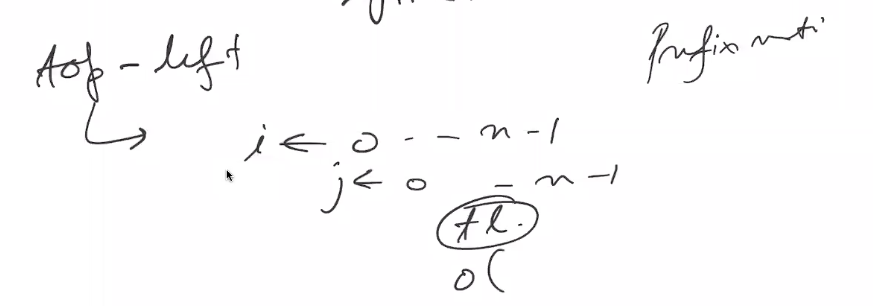 Top - left
Prefix mati
i ← 0 - - n - 1
j ← 0 - n - 1
tl.
O(